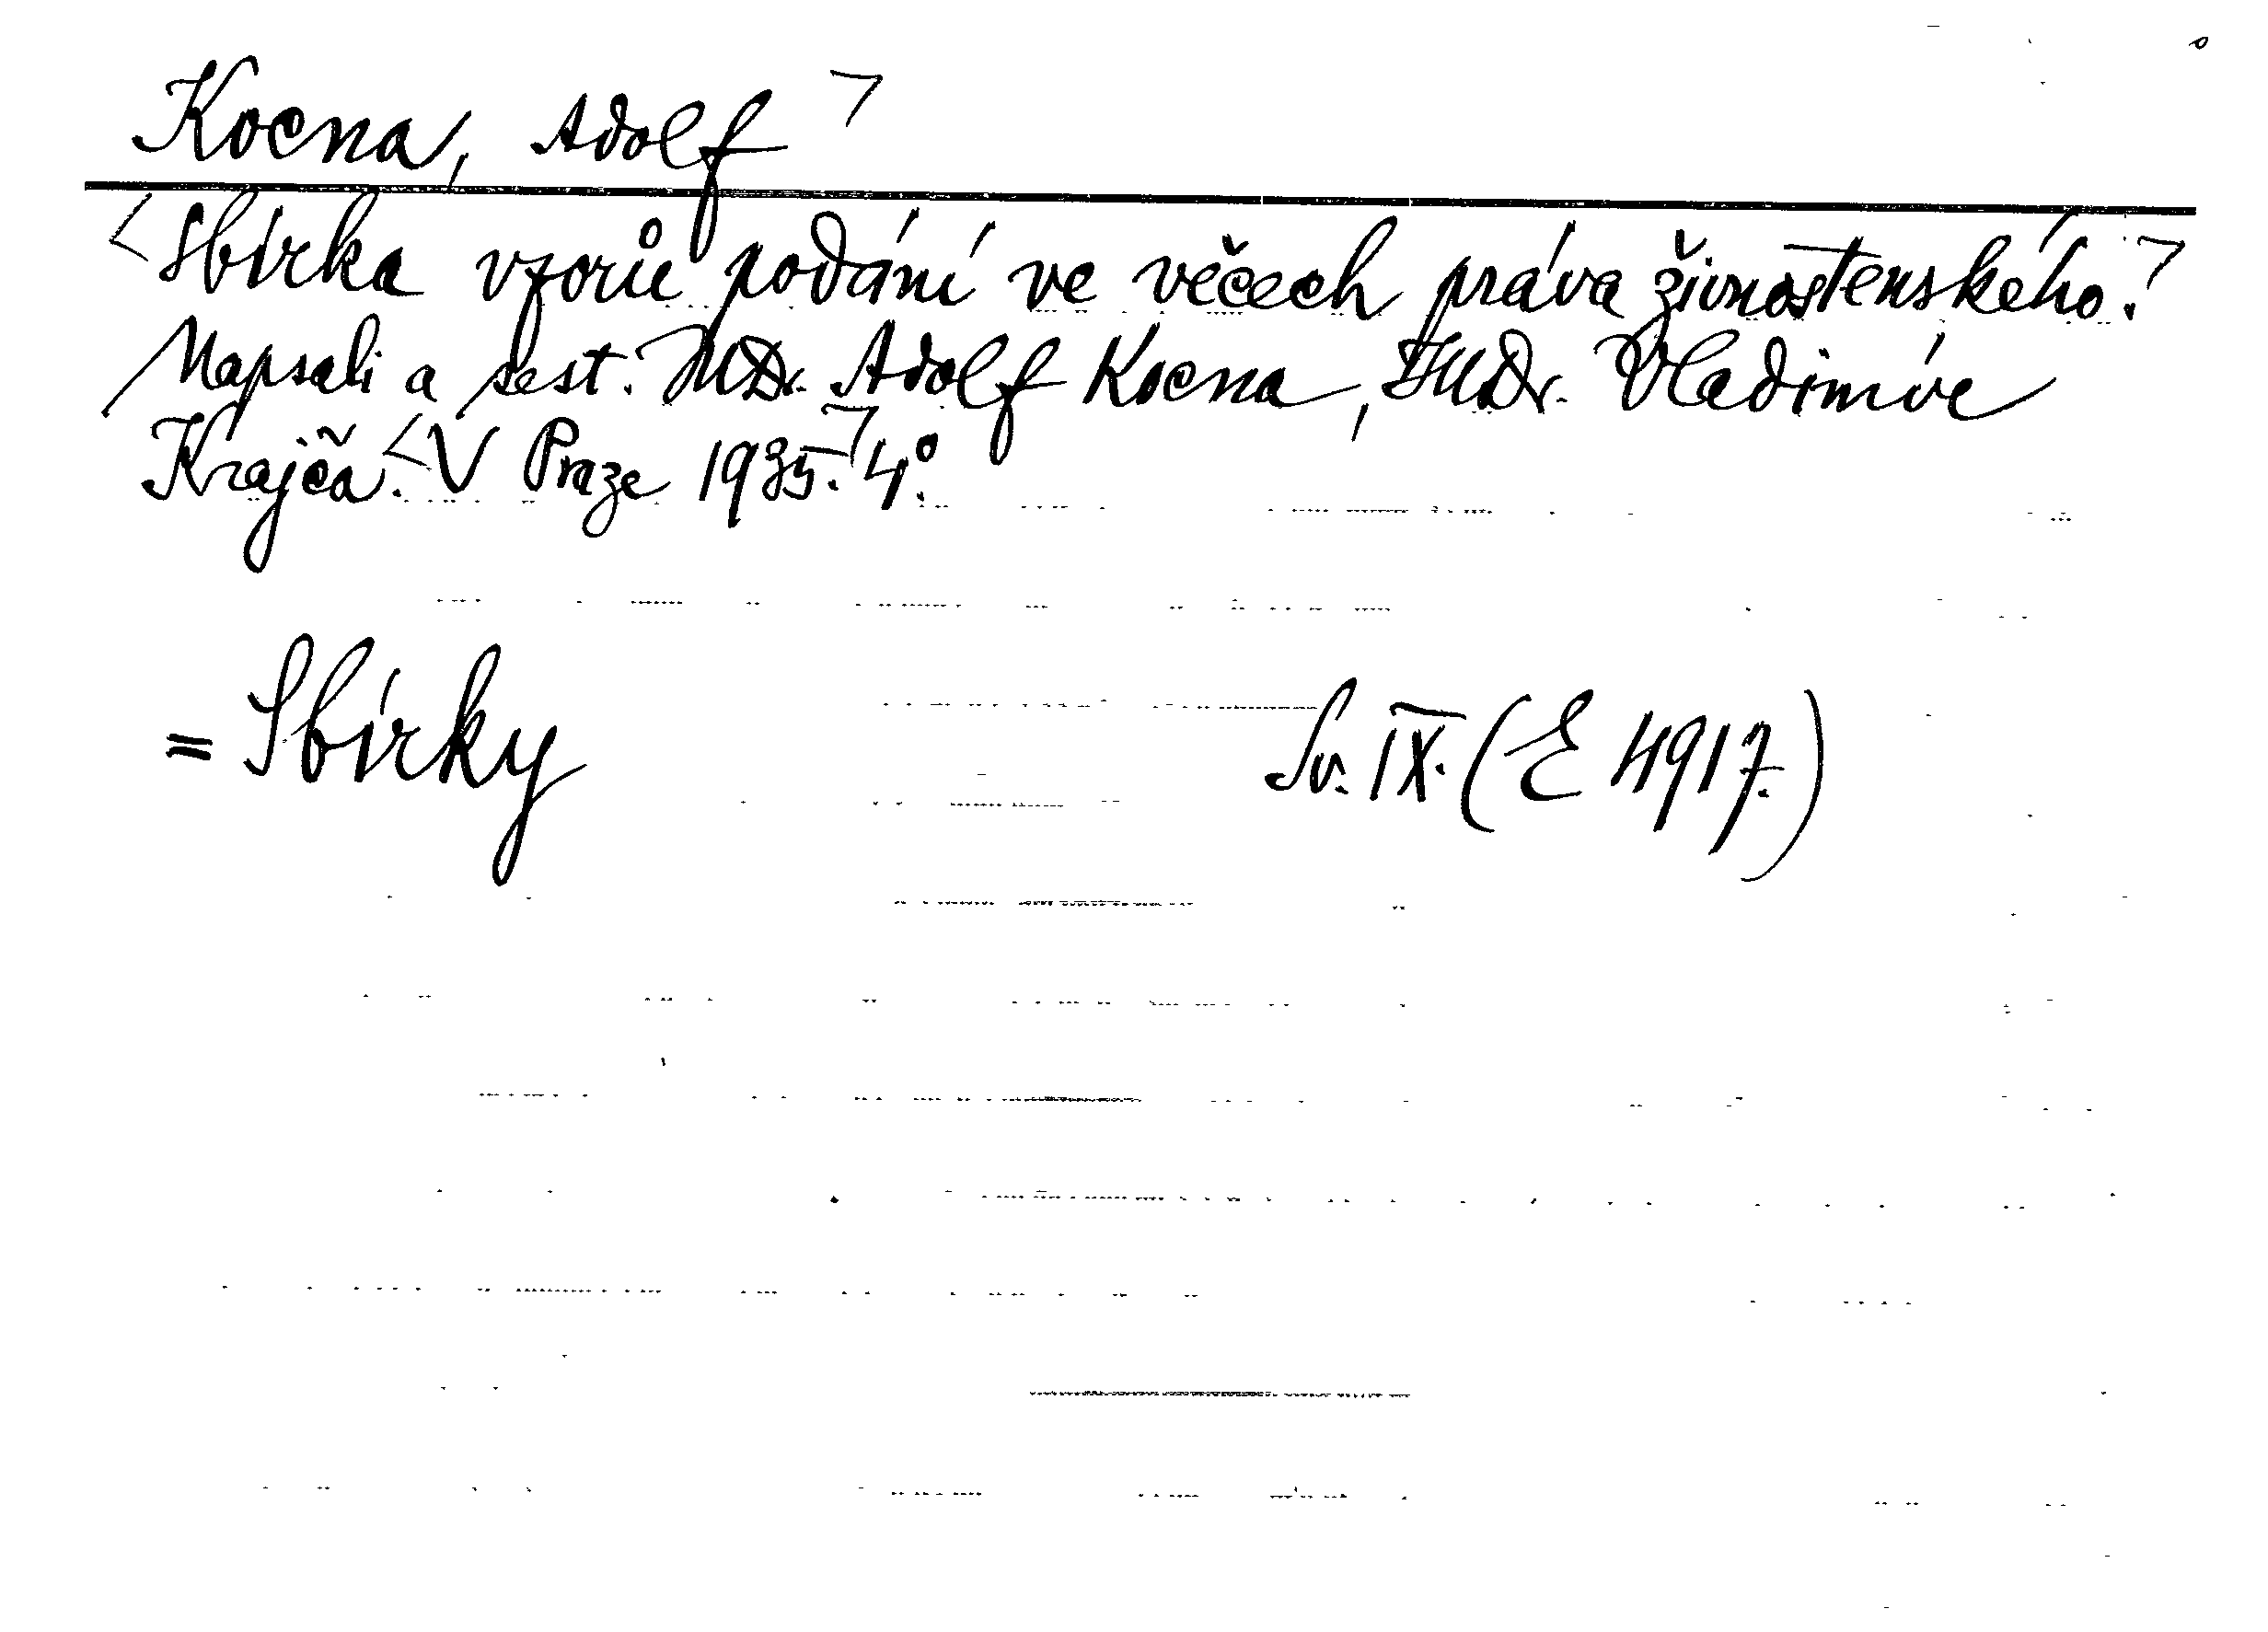 Kocna, Adolf
Sbírka vzorů podání ve věcech práva živnostenského.
Napsali a sest. JUDr. Adolf Kocna, JUDr. Vladimír
Krajča. V Praze 1935. 4°.
= Sbírky Sv. IX. (E 4917.)